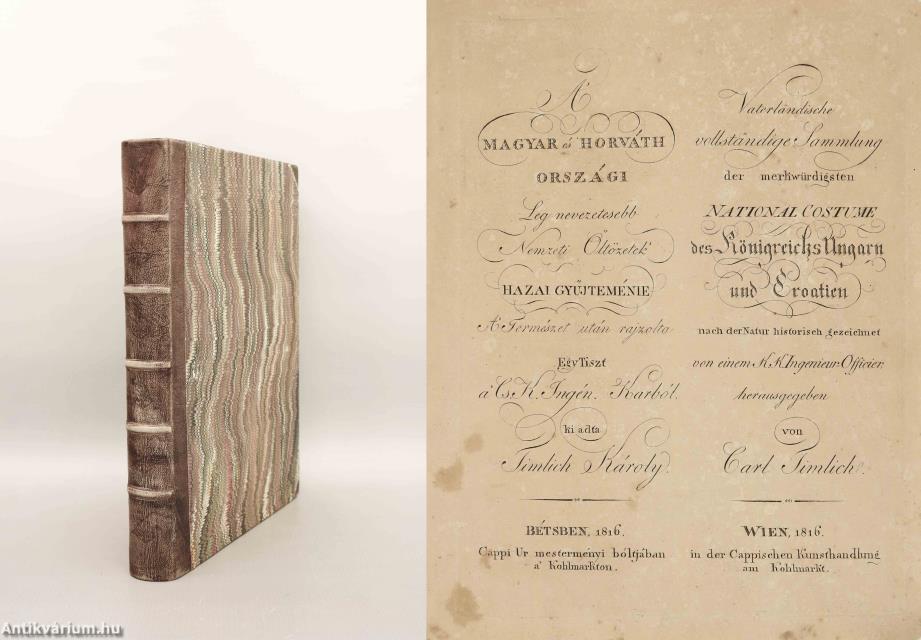 A'
MAGYAR és HORVÁTH
ORSZÁGI
Leg nevezetesebb
Nemzeti Öltözetek'
HAZAI GYŰJTEMÉNIE
A' Természet után rajzolta
Egy Tiszt
a' Cs. K. Ingén. Karból.
ki adta
Timlich Károly.
BÉTSBEN, 1816.
Cappi Ur mesterményi bóltjában
a' Kohlmarkton.
Vaterländische
vollständige Sammlung
der merkwürdigsten
NATIONAL COSTUME
des Königreichs Ungarn
und Croatien
nach der Natur historisch gezeichnet
von einem K.K. Ingenieur-Officier.
herausgegeben
von
Carl Timlich.
WIEN, 1816.
in der Cappischen Kunsthandlung
am Kohlmarkt.
Antikvárium.hu